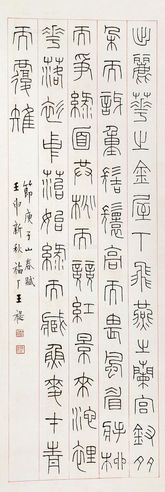 出麗華之金屋下飛燕之蘭宮釵朵
多而訝重髻鬟高而畏風眉將柳
而爭綠面共桃而競紅景來池裡
華落衫中苔始綠而臧魚麥才青
而覆雉
節庾子山春賦
壬申新秋福厂王禔